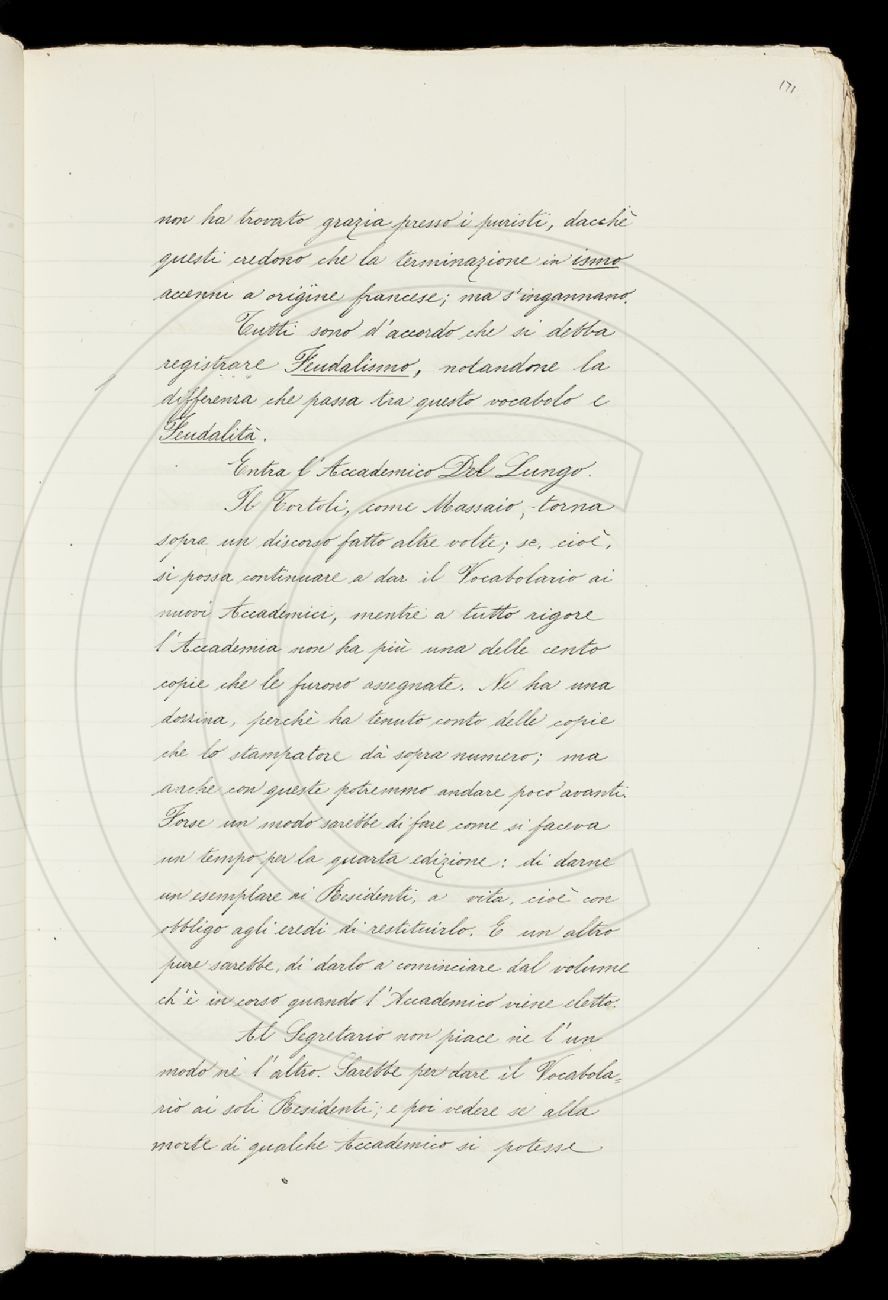 171
non ha trovato grazia presso i puristi, dacchè
questi credono che la terminazione in ismo
accenni a origine francese; ma s'ingannano.
Tutti sono d'accordo che si debba
registrare Feudalismo, notandone la
differenza che passa tra questo vocabolo e
Feudalità.
Entra l'Accademico Del Lungo.
Il Tortoli, come Massaio, torna
sopra un discorso fatto altre volte; se, cioè,
si possa continuare a dar il Vocabolario ai
nuovi Accademici, mentre a tutto rigore
l'Accademia non ha più una delle cento
copie che le furono assegnate. Ne ha una
dozzina, perchè ha tenuto conto delle copie
che lo stampatore dà sopra numero; ma
anche con queste potremmo andare poco avanti.
Forse un modo sarebbe di fare come si faceva
un tempo per la quarta edizione: di darne
un esemplare ai Residenti, a vita, cioè con
obbligo agli eredi di restituirlo. E un altro
pure sarebbe, di darlo a cominciare dal volume
ch'è in corso quando l'Accademico viene eletto.
Al Segretario non piace nè l'un
modo nè l'altro. Sarebbe per dare il Vocabola=
rio ai soli Residenti; e poi vedere se alla
morte di qualche Accademico si potesse